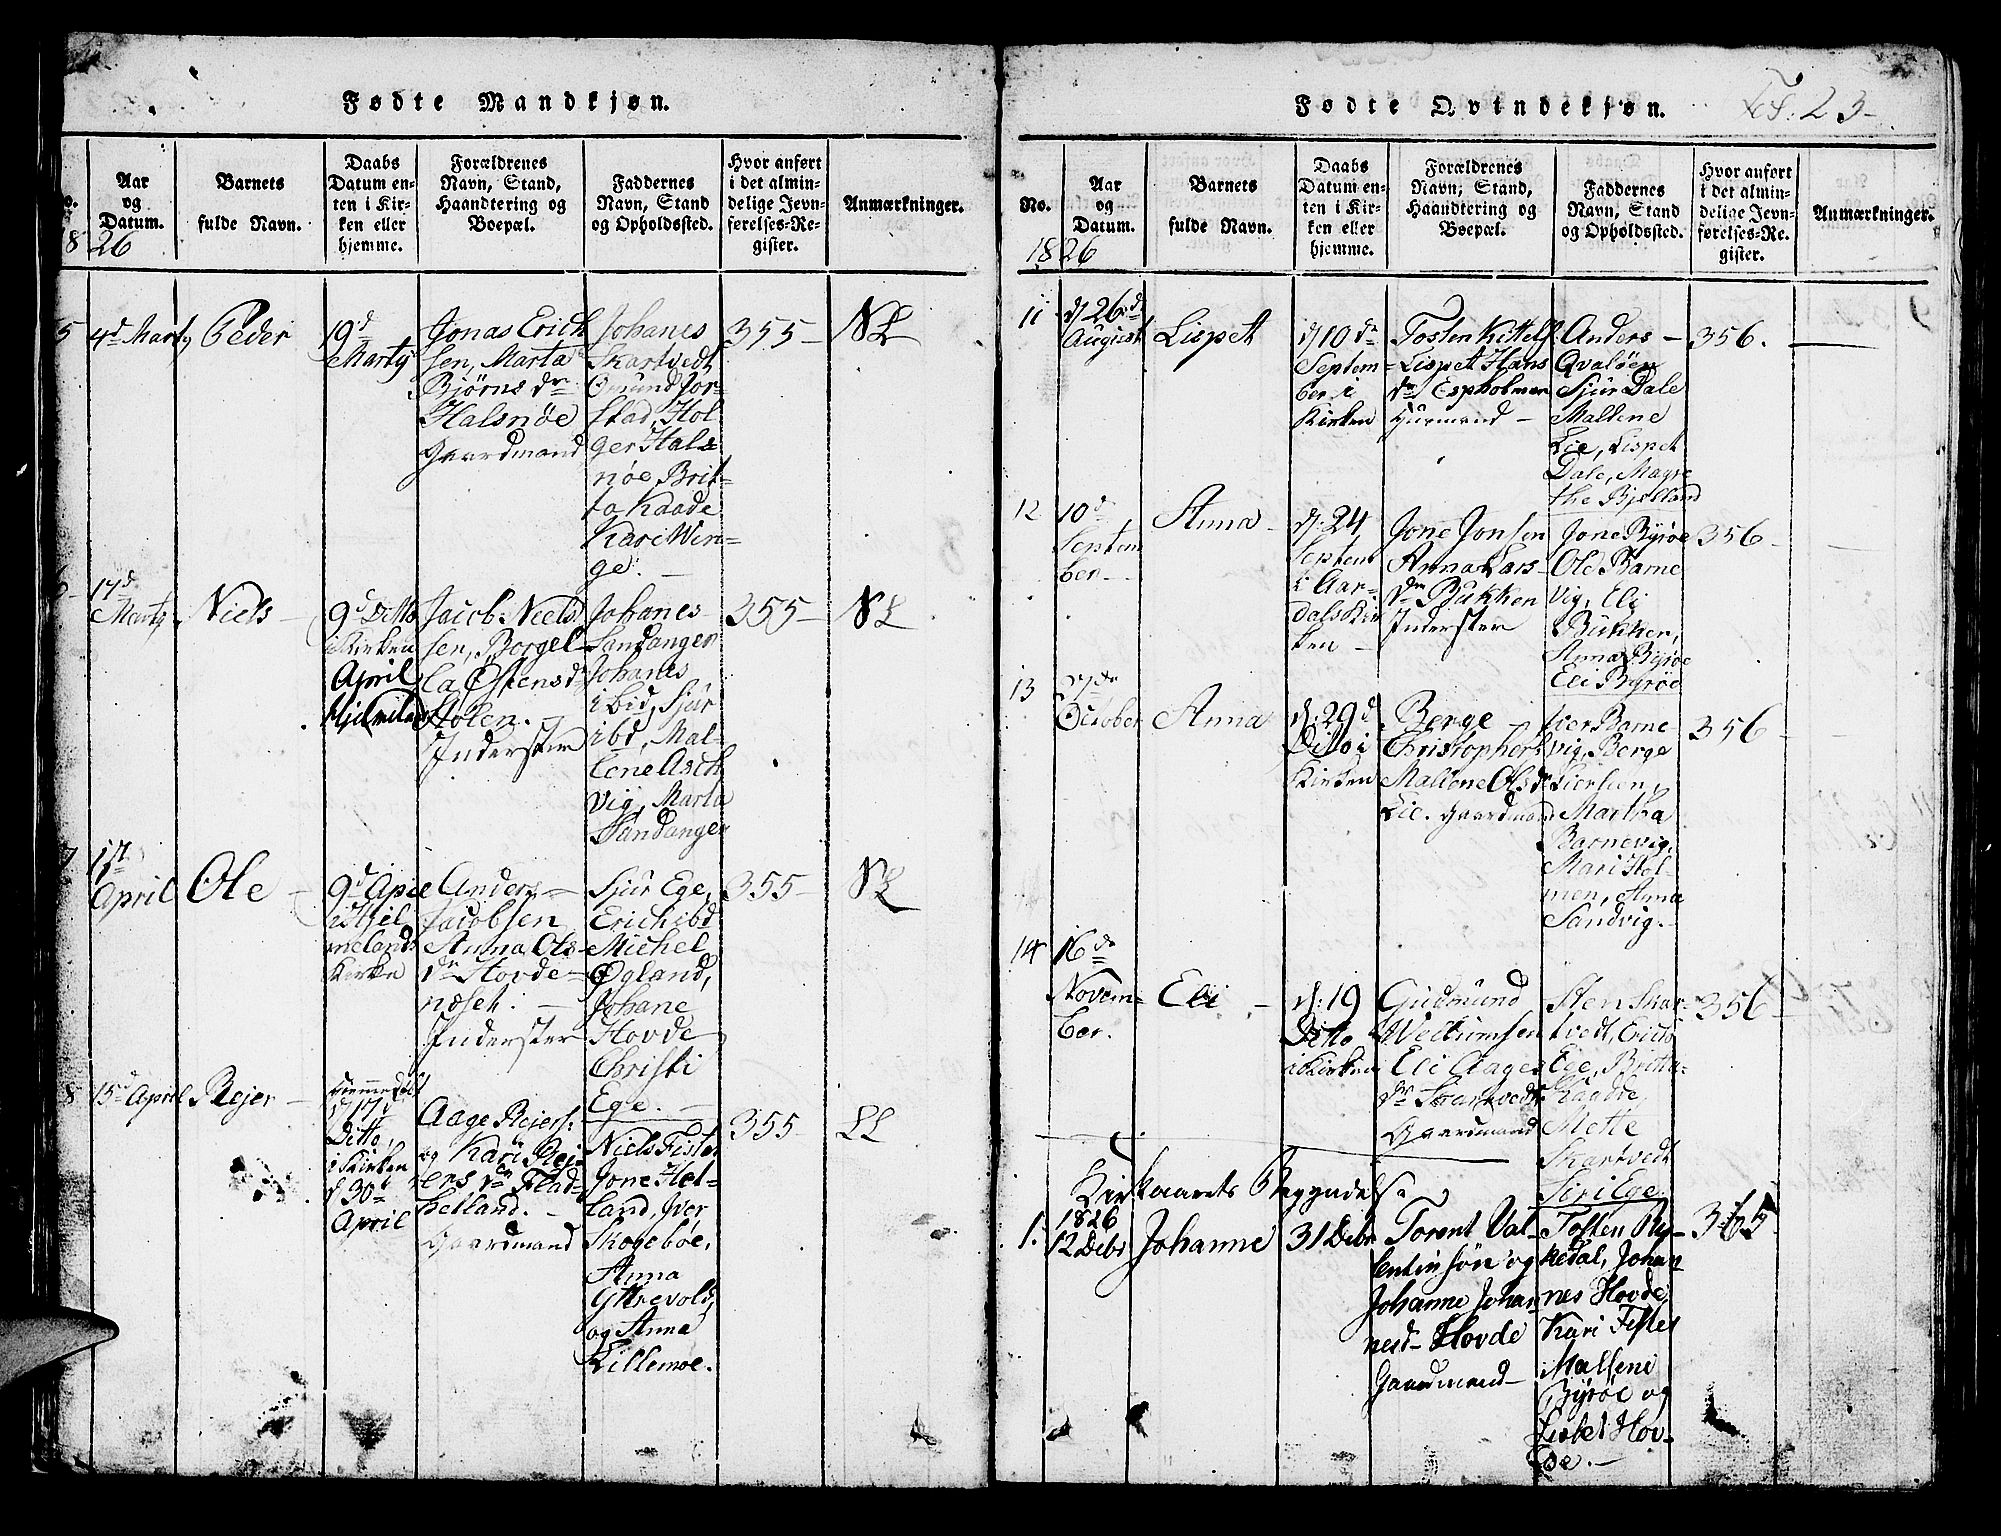 Fødte Mandkjøn.
No.
Aar
og
Datum.
Barnets
fulde Navn.
Daabs
Datum en-
ten i Kir-
ken eller
hjemme.
Forældrenes
Navn, Stand,
Haandtering og
Boepæl.
Faddernes
Navn, Stand
og Opholdssted.
Hvor anført
i det almin-
delige Jevn-
førelses-Re-
gister.
Anmærkninger.
1826
5
4d Marty
Peder
19d
Marty
Jonas Erich
sen, Marta
Bjørns dr
Halsnøe
Gaardmand
Johanes
Skartvedt
Omund Jor-
stad, Hol
ger Hals
nøe, Brit-
ta Kaade
Kari Win-
ge.
355
NL
6
17d
Marty
Niels
9d Ditto
i Kirken
April
Hjelmeland
Jacob Niels
sen, Borgel
la Østensd
Stølen.
Inderster
Johanes
Sandanger
Johanes
ibid, Sjur
ibd, Mal-
lene Asch
vig, Marta
Sandanger
355
NL
7
1st
April
Ole
9d April
i Hjel
melands
Kirke
Anders
Jacobsen
Anna Ols
dr Hovde-
næset.
Inderster
Sjur Ege,
Erich ibd
Michel
Øgland,
Johane
Hovde
Christi
Ege.
355
NL
8
15d April
Rejer
Hjemmedøbt
d 17d
Ditto,
i Kirken
d 30d
April
Aage Reiers:
og Kari Rej
ers dr Flad-
helland.
Gaardmand
Niels Fister
Jone Hel-
land, Iver
Skogebøe,
Anna
Yttrevold,
og Anna
Lillemoe.
355
LL
Fødte Qvindekjøn.
Fol. 23
No.
Aar
og
Datum.
Barnets
fulde Navn.
Daabs
Datum en-
ten i Kir-
ken eller
hjemme.
Forældrenes
Navn, Stand,
Haandtering og
Boepæl.
Faddernes
Navn, Stand
og Opholdssted.
Hvor anført
i det almin-
delige Jevn-
førelses-Re-
gister.
Anmærkninger.
1826
11
d 26d
August
Lispet
d 10de
Septem-
ber i
Kirken
Tosten Kittels
Lispet Hans
dr Espholmen
Huusmand
Anders
Qvaløen
Sjur Dale
Mallene
Lie, Lispet
Dale, Magre
the Bjelland
356.
12
10d
Septem
ber
Anna
d: 24
Septem
i Aar-
dals Kir
ken
Jone Jonsen
Anna Lars
dr Bukken
Inderster
Jone Byrøe
Ole Barne
vig, Eli
Bukken,
Anna Byrøe
Eli Byrøe
356
13
October
Anna
d: 29d
Ditto i
Kirken
Berge
Christophers
Mallene Olsdr
Lie. Gaardmand
Iver Barne
vig, Berge
Martha
Barnevig,
Mari Hol-
men, Anna
Sandvig.
356
14
16de
Novem-
ber.
Eli
d: 19
Ditto
i Kirken
Gudmund
Eli Aages
dr Skartvedt
Gaardmand
Sten Skar-
tvedt, Erich
Ege, Britta
Kaade,
Mette
Skartvedt
Siri Ege
356
Kirkeaarets Begyndelse
1.
1826
12 Debr
Johanne
31 Debr
Torent Val-
lentinsøn og
Johanne Johan
nesd Hovde
Gaardmand
Tosten Ry-
kedal, Johan
nes Hovde,
Kari Fister
Mallene
Byrøe og
Lisbet Hov-
de.
365